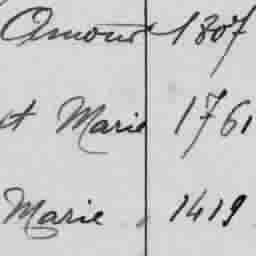 Amour 1807
t Marie 1761
Marie, 1419